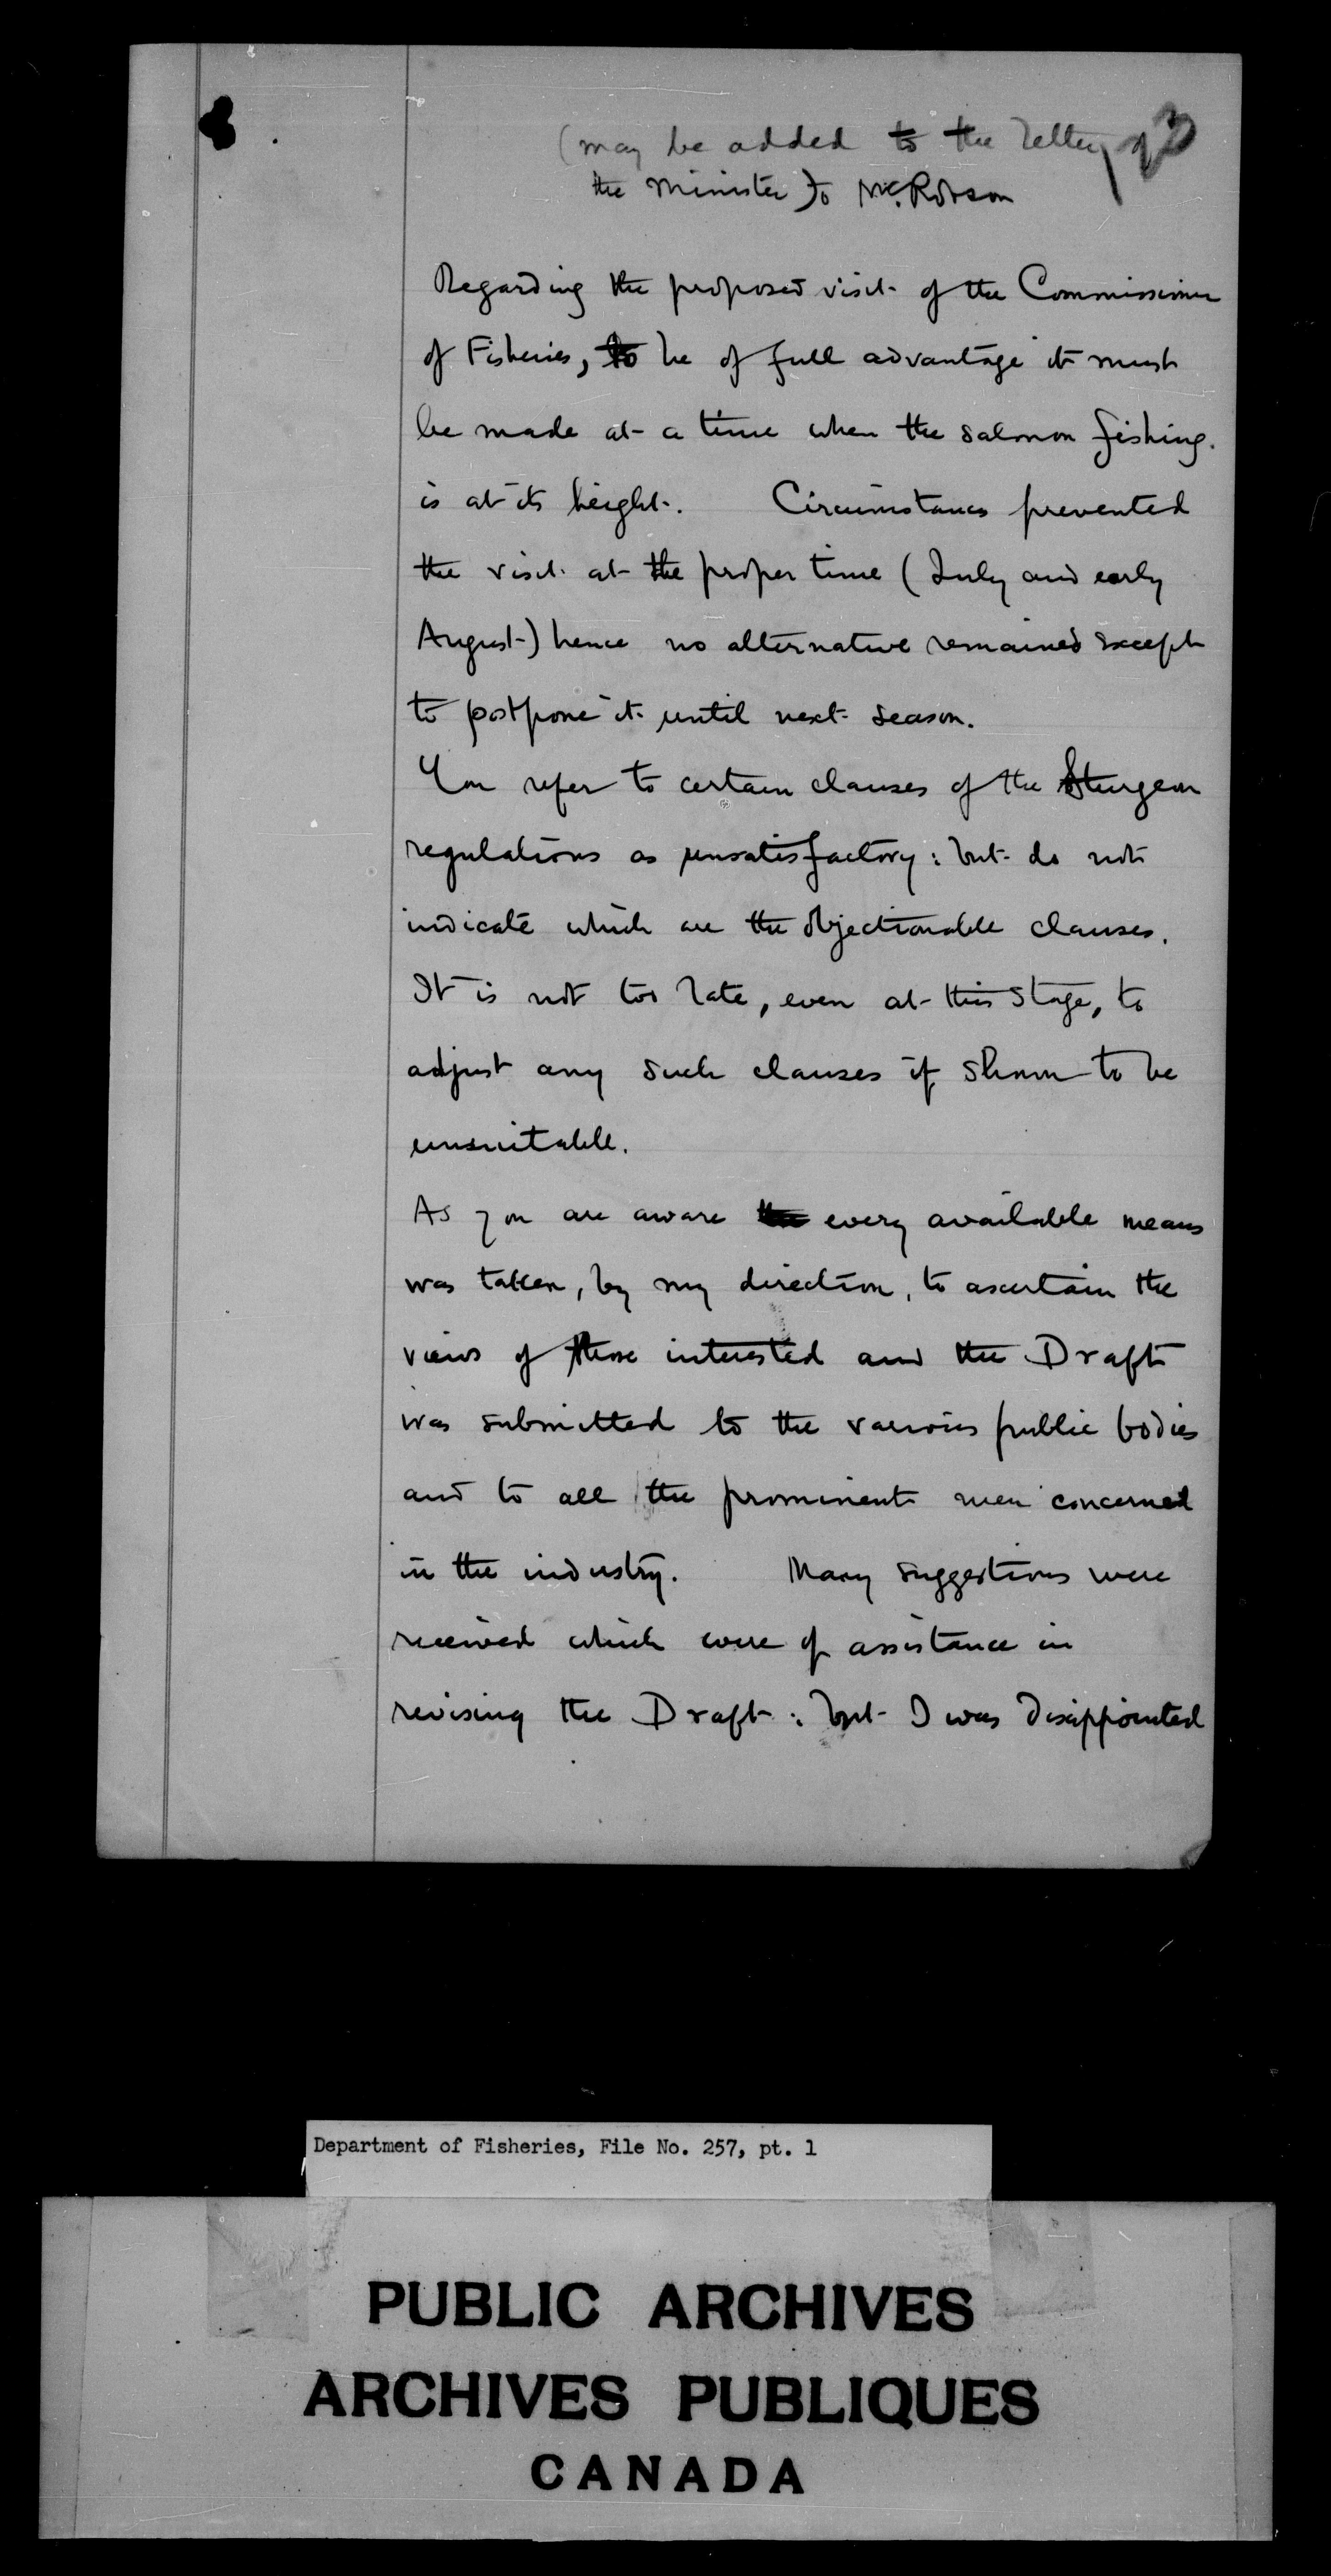 (may be added to the letter of
the Minister) to Mr. Robson
Regarding the proposed visit of the Commissioner
of Fisheries, to be of full advantage it must
be made at a time when the salmon fishing
is at its height. Circumstances prevented
the visit at the proper time (July and early
August) hence no alternative remained except
to postpone it until next season.
You refer to certain clauses of the Sturgeon
regulations as unsatisfactory: but do not
indicate which are the objectionable clauses.
It is not too late, even at this stage, to
adjust any such clauses if shown to be
unsuitable.
As you are aware every available means
was taken, by my direction, to ascertain the
views of those interested and the Draft
was submitted to the various public bodies
and to all the prominent men concerned
in the industry. Many suggestions were
received which were of assistance in
revising the Draft: but I was disappointed
Department of Fisheries, File No. 257, pt. 1
PUBLIC ARCHIVES
ARCHIVES PUBLIQUES
CANADA